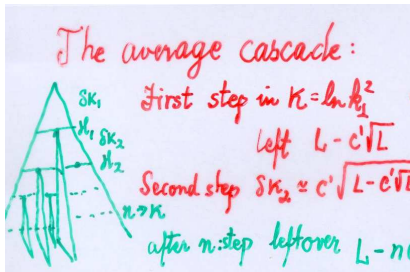 The average cascade:
δκ₁
First step in κ = ln k₁²
κ₁ δκ₂
left L - c'√L
κ₂
Second step δκ₂ ≃ c'√L - c'√L
n → κ
after n: step leftover L - n